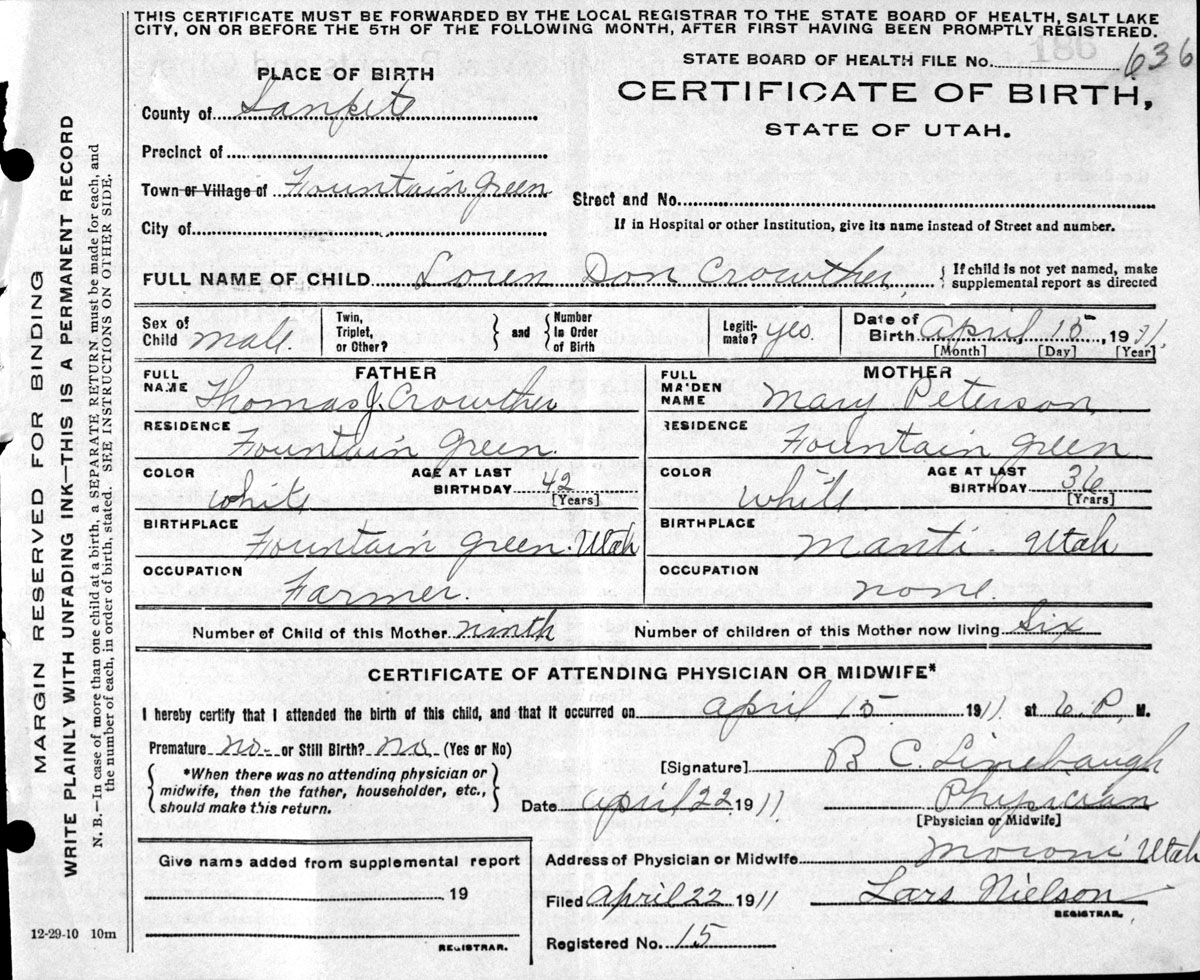 THIS CERTIFICATE MUST BE FORWARDED BY THE LOCAL REGISTRAR TO THE STATE BOARD OF HEALTH, SALT LAKE
CITY, ON OR BEFORE THE 5TH OF THE FOLLOWING MONTH, AFTER FIRST HAVING BEEN PROMPTLY REGISTERED.
186
STATE BOARD OF HEALTH FILE No. 636
CERTIFICATE OF BIRTH,
STATE OF UTAH.
PLACE OF BIRTH
County of Sanpete
Precinct of
Town or Village of Fountain Green
Street and No.
City of
If in Hospital or other Institution, give its name instead of Street and number.
FULL NAME OF CHILD Loren Don Crowther
If child is not yet named, make
supplemental report as directed
Sex of Child male
Twin, Triplet, or Other? and Number In Order of Birth
Legiti-mate? yes
Date of Birth April 15, 1911.
[Month] [Day] [Year]
FATHER
FULL NAME Thomas J. Crowther
RESIDENCE Fountain Green.
COLOR White
AGE AT LAST BIRTHDAY 42 [Years]
BIRTHPLACE Fountain Green. Utah
OCCUPATION Farmer.
MOTHER
FULL MAIDEN NAME Mary Peterson
RESIDENCE Fountain Green
COLOR White
AGE AT LAST BIRTHDAY 36 [Years]
BIRTHPLACE Manti. Utah
OCCUPATION none.
Number of Child of this Mother ninth Number of children of this Mother now living Six
CERTIFICATE OF ATTENDING PHYSICIAN OR MIDWIFE*
I hereby certify that I attended the birth of this child, and that it occurred on April 15 1911 at 6.P. M.
Premature no- or Still Birth? no (Yes or No)
*When there was no attending physician or
midwife, then the father, householder, etc.,
should make this return.
[Signature] B C. Linebaugh
Date April 22 1911 Physician
[Physician or Midwife]
Give name added from supplemental report
19
REGISTRAR.
Address of Physician or Midwife Moroni Utah
Filed April 22 1911 Lars Nielson
REGISTRAR.
Registered No. 15
MARGIN RESERVED FOR BINDING
WRITE PLAINLY WITH UNFADING INK—THIS IS A PERMANENT RECORD
N. B.—In case of more than one child at a birth, a SEPARATE RETURN must be made for each, and
the number of each, in order of birth, stated. SEE INSTRUCTIONS ON OTHER SIDE.
12-29-10 10m